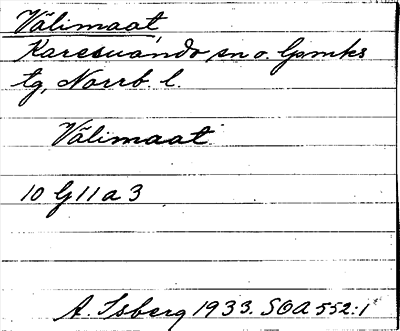 Välimaat
Karesuando, sn o. lpmks
tg, Norrb. l.
Välimaat
10 G 11 a 3
A. Isberg 1933. SOA 552:1